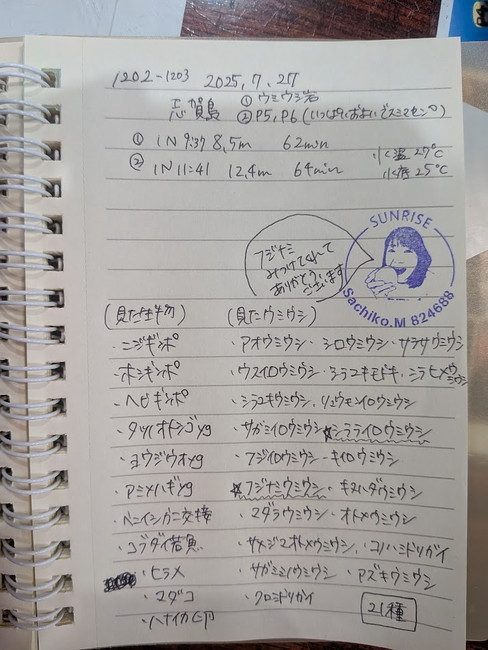 1202-1203 2025.7.27
志賀島 ① ウミウシ岩
② P5,P6 (いっぱいおよいでスミマセン)
① IN 9:37 8.5m 62min 水温27℃
② IN 11:41 12.4m 64min 水底25℃
SUNRISE
Sachiko.M 824688
フジナミ
みつけてくれて
ありがとうございます
(見た生物) (見たウミウシ)
・ニジギンポ ・アオウミウシ・シロウミウシ・サラサウミウシ
・ホシギンポ ・ウスイロウミウシ・シラユキモドキ・シラヒメウミウシ
・ヘビギンポ ・シラユキウミウシ・リュウモンイロウミウシ
・タツノオトシゴyg ・サガミイロウミウシ☆シラライロウミウシ
・ヨウジウオyg ・フジイロウミウシ・キイロウミウシ
・アミメハギyg ☆フジナミウミウシ・キヌハダウミウシ
・ベニイシガニ交接 ・マダラウミウシ・オトメウミウシ
・コブダイ若魚 ・サメジマオトメウミウシ・コノハミドリガイ
・ヒラメ ・サガミミノウミウシ・アズキウミウシ
・マダコ ・クロミドリガイ 21種
・ハナイカ卵